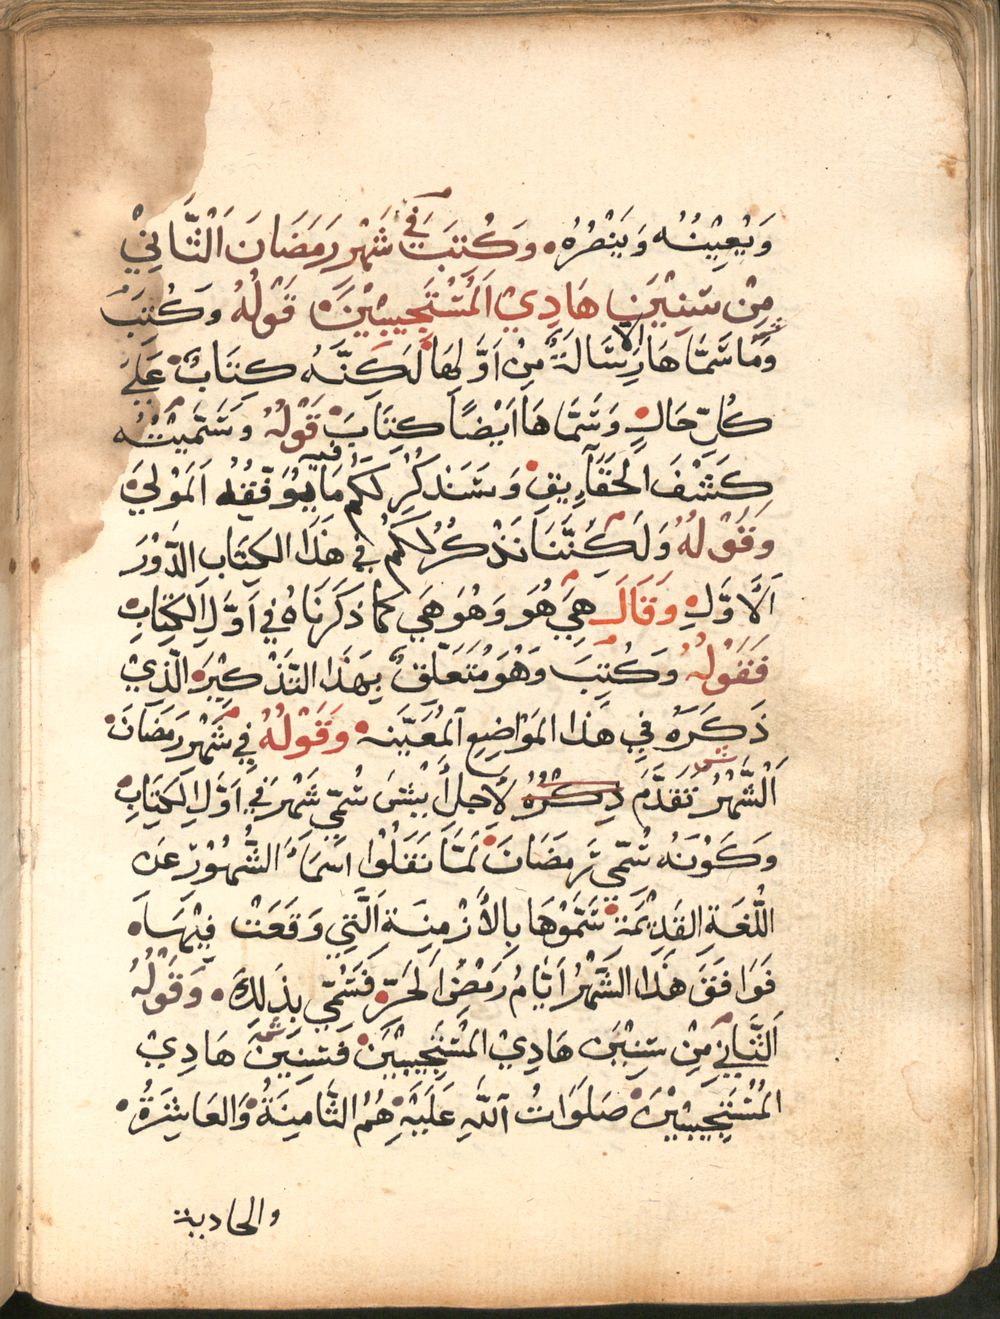 وَيُعِيْنُهُ وَيَنْصُرُهُ • وَكُتِبَ فِي شَهْرِ رَمَضَانَ الثَّانِيْ
مِنْ سِنِيْنَ هَادِيْ المُسْتَجِيْبِيْنَ قَوْلُهُ وَكُتِبَ
وَمَا سَمَّاهَا رِسَالَةً مِنْ اَوَّلِهَا لَكِنَّهُ كِتَابٌ عَلَى
كُلِّ حَالٍ وَسَمَّاهَا اَيْضًا كِتَابَ قَوْلُهُ وَسَمَّيْتُهُ
كَشْفَ الحَقَايِقِ وَسَنَذْكُرُ لَكُمْ مَا يُوَفِّقُ فيه المَوْلِي
وَقَوْلُهُ وَلَكِنَّنَا نَذْكُرُ لَكُمْ فِي هَذَا الكِتَابِ الدَّوْرَ
اَلاَّوَّلِ وَقَالَ هِيَ هُوَ وَهُوَ هِيَ كَمَا ذَكَرْنَاهُ فِي اَوَّلِ الكِتَابِ
فَقَوْلُهُ وَكُتِبَ وَهْوَ مُتَعَلِّقٌ بِهَذَا التَّذْكِيْرِ الَّذِيْ
ذَكَرَهُ فِي هَذَا المَوَاضِعِ المُعَيَّنَه • وَقَوْلُهُ فِي شَهْرِ رَمَضَانَ •
اَلشَّهْرُ ش تَقَدَّمَ ذِكْرُهُ لأَجِلْ أَيْشَ سُمِّيَ شَهْرَ فِي اَوَّلِ الكِتَابِ
وَكَوْنَهُ سُمِّيَ رَمَضَانَ لَمَّا نَقَلُوا اَسْمَاءَ الشُّهُوْرِ عَنِ
اللُّغَةِ القَدِيْمَة سَمَّوْهَا بِالأَزْمِنَةِ الَّتِي وَقَعَتْ فِيْهَا •
فَوَافَقَ هَذَا الشَّهْرُ اَيَّامُ رَمَضُ الحَرِّ فَسُمِّيَ بِذَلِكَ • وَقَوْلُهُ
الثَّانِي مِنْ سِنِيْنَ هَادِيْ المُسْتَجِيْبِيْنَ فَسِنِيْنَ ش هَادِيْ
المُسْتَجِيْبِيْنَ صَلَوَاتُ اللَّهِ عَلَيْهِ هُمُ الثَّامِنَةُ وَالعَاشِرَةُ •
والحاديه